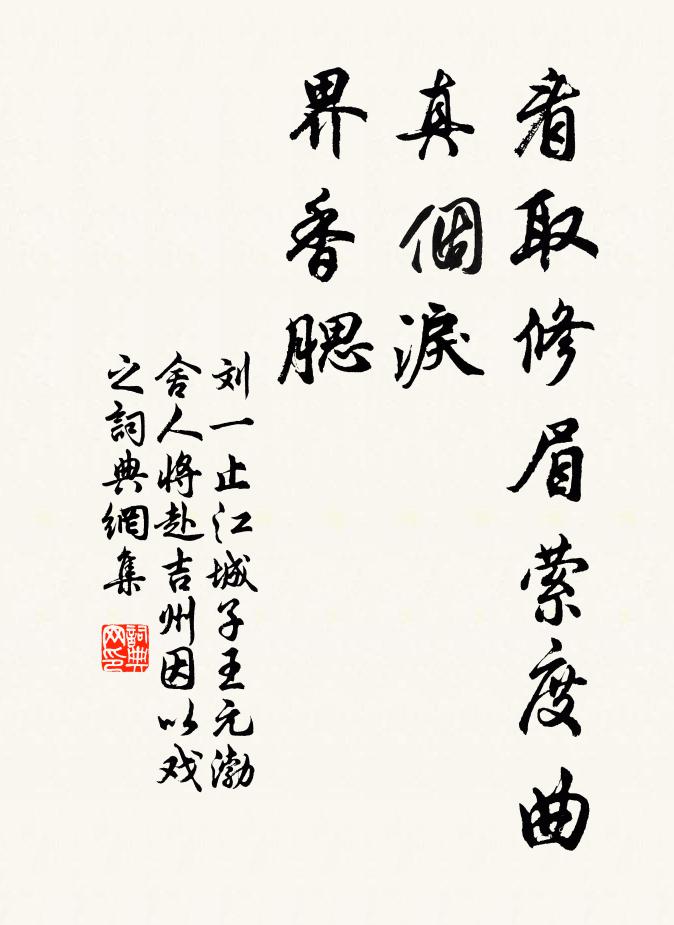 看取修眉萦度曲
真個淚
界香腮
刘一止江城子王元渤
舍人将赴吉州因以戏
之詞典網集
詞典网印